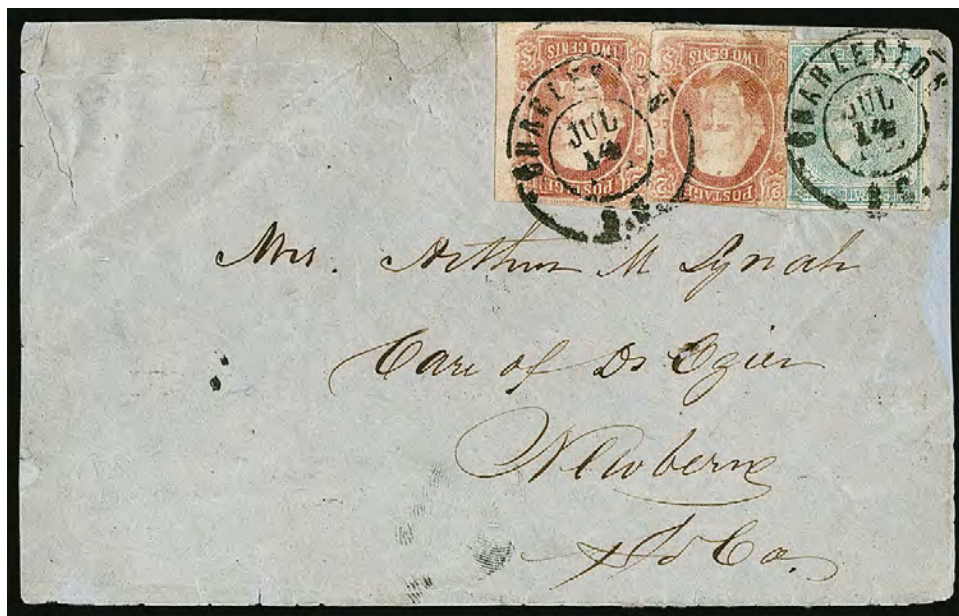 TWO CENTS
TWO CENTS
POSTAGE
POSTAGE
CHARLESTON
JUL
14
CHARLESTON
JUL
14
S.C.
Mrs. Arthur M Lynah
Care of Dr Ogier
Newberne
So Ca.